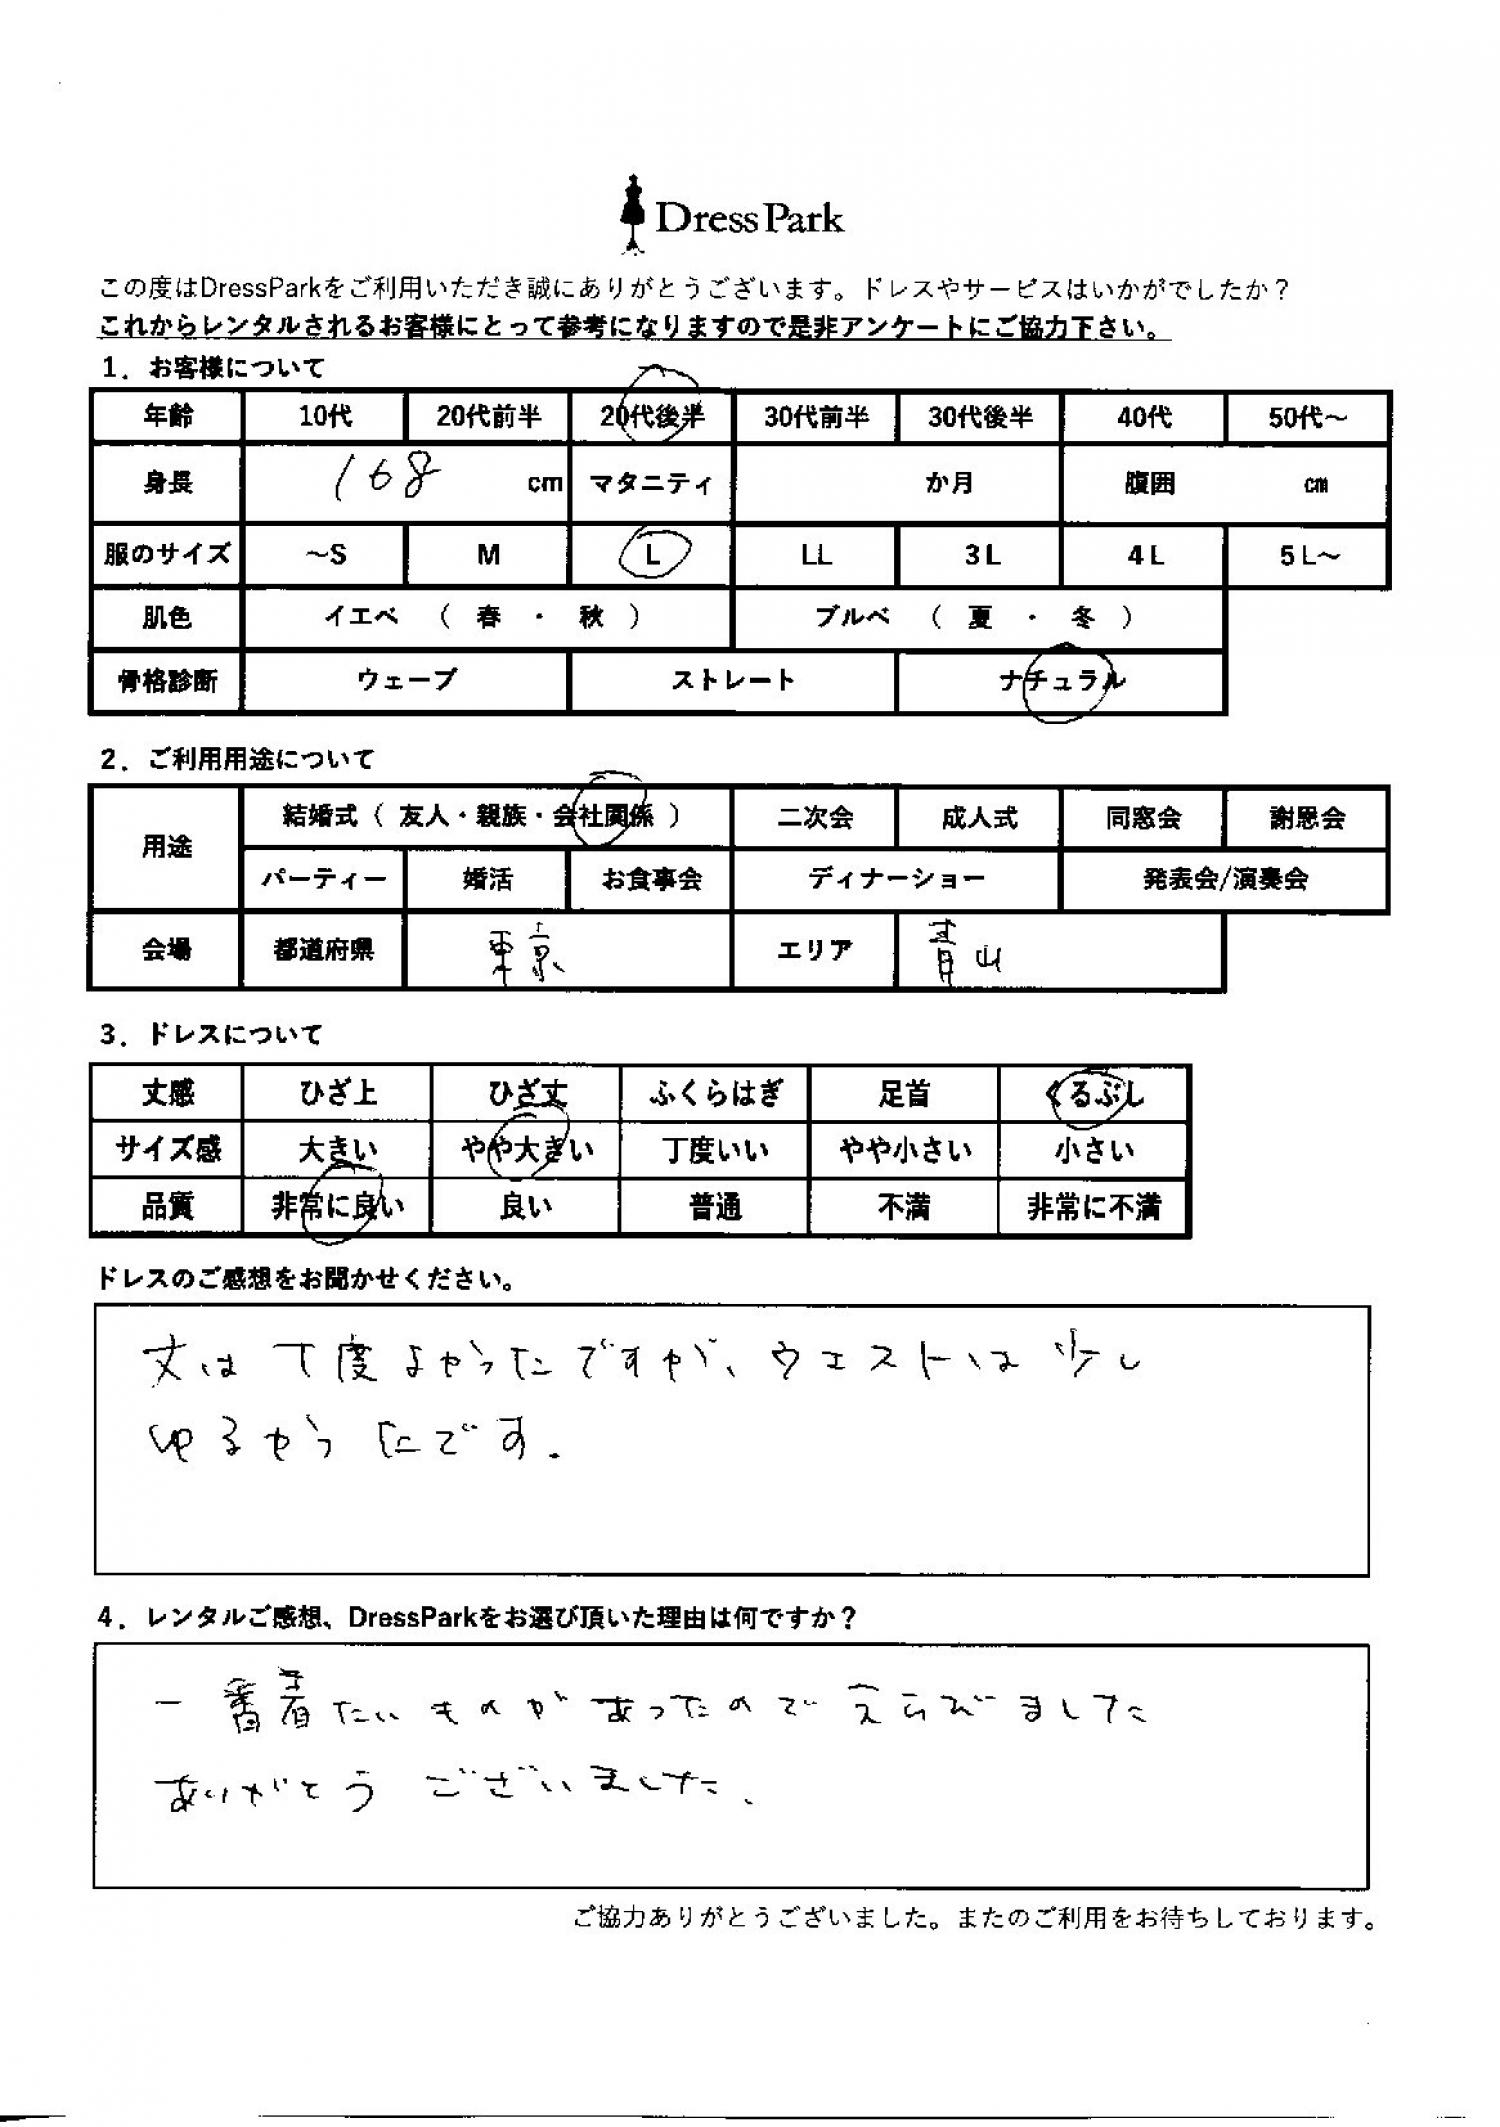 Dress Park
この度はDressParkをご利用いただき誠にありがとうございます。ドレスやサービスはいかがでしたか？
これからレンタルされるお客様にとって参考になりますので是非アンケートにご協力下さい。
1．お客様について
年齢 10代 20代前半 20代後半 30代前半 30代後半 40代 50代～
身長 168 cm マタニティ か月 腹囲 cm
服のサイズ ～S M L LL 3L 4L 5L～
肌色 イエベ （ 春 ・ 秋 ） ブルベ （ 夏 ・ 冬 ）
骨格診断 ウェーブ ストレート ナチュラル
2．ご利用用途について
用途 結婚式（ 友人・親族・会社関係 ） 二次会 成人式 同窓会 謝恩会
パーティー 婚活 お食事会 ディナーショー 発表会/演奏会
会場 都道府県 東京 エリア 青山
3．ドレスについて
丈感 ひざ上 ひざ丈 ふくらはぎ 足首 くるぶし
サイズ感 大きい やや大きい 丁度いい やや小さい 小さい
品質 非常に良い 良い 普通 不満 非常に不満
ドレスのご感想をお聞かせください。
丈は丁度よかったですが、ウエストは少し
ゆるかったです.
4．レンタルご感想、DressParkをお選び頂いた理由は何ですか？
一番着たいものがあったのでえらびました
ありがとうございました、
ご協力ありがとうございました。またのご利用をお待ちしております。